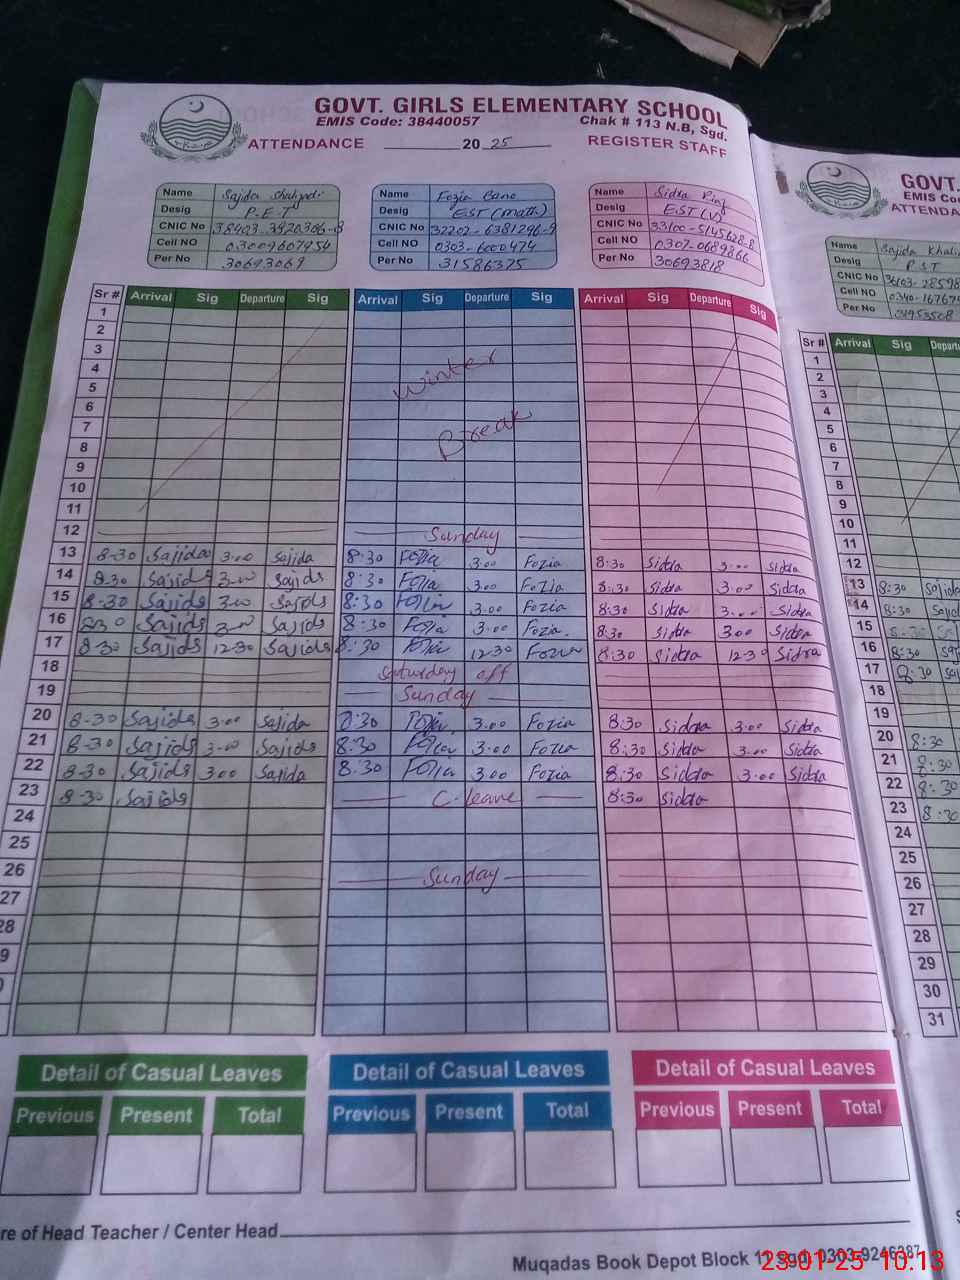 GOVT. GIRLS ELEMENTARY SCHOOL
EMIS Code: 38440057 Chak # 113 N.B, Sgd.
ATTENDANCE 2025 REGISTER STAFF
Name Sajida
Desig P.E.T
CNIC No
Cell NO 03009607454
Per No 30693069
Name Fozia Bano
Desig EST (math)
CNIC No 32202-6381296-9
Cell NO 0303-6000474
Per No 31586375
Name Sidra
Desig EST (V)
CNIC No 33100-5145628-8
Cell NO 0307-0689866
Per No 30693818
Sr # Arrival Sig Departure Sig Arrival Sig Departure Sig Arrival Sig Departure Sig
1
2
3
4 Winter
5
6
7 Break
8
9
10
11
12 Sunday
13 8-30 Sajida 3.00 Sajida 8:30 Fozia 3.00 Fozia 8:30 Sidra 3.00 Sidra
14 8-30 Sajida 3.00 Sajida 8:30 Fozia 3.00 Fozia 8:30 Sidra 3.00 Sidra
15 8-30 Sajida 3.00 Sajida 8:30 Fozia 3.00 Fozia 8:30 Sidra 3.00 Sidra
16 8-30 Sajida 3.00 Sajida 8:30 Fozia 3.00 Fozia. 8:30 Sidra 3.00 Sidra
17 8-30 Sajida 12-30 Sajida 8:30 Fozia 12-30 Fozia 8:30 Sidra 12-30 Sidra
18 Saturday off
19 Sunday
20 8-30 Sajida 3.00 Sajida 8:30 Fozia 3.00 Fozia 8:30 Sidra 3.00 Sidra
21 8-30 Sajida 3.00 Sajida 8:30 Fozia 3.00 Fozia 8:30 Sidra 3.00 Sidra
22 8-30 Sajida 3.00 Sajida 8:30 Fozia 3.00 Fozia 8:30 Sidra 3.00 Sidra
23 8-30 Sajida C.leave 8:30 Sidra
24
25
26 Sunday
27
28
9
Detail of Casual Leaves Detail of Casual Leaves Detail of Casual Leaves
Previous Present Total Previous Present Total Previous Present Total
re of Head Teacher / Center Head
Muqadas Book Depot Block 11 Sgd. 0303-9246387
GOVT.
EMIS Co
ATTENDA
Name Sajida
Desig P.S.T
CNIC No
Cell NO
Per No 31953508
Sr # Arrival Sig
1
2
3
4
5
6
7
8
9
10
11
12
13 8:30
14 8:30
15 8:30
16 8:30
17 8:30
18
19
20 8:30
21 8:30
22 8:30
23 8:30
24
25
26
27
28
29
30
31
23-01-25 10:13